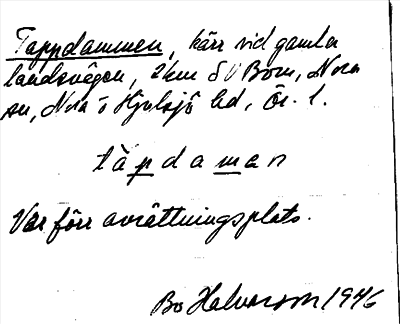 Tappdammen, kärr vid gamla
landsvägen, 2 km SV Born, Nora
sn, Nora o Hjulsjö bd, Ör. l.
tàpdaman
Var förr avrättningsplats.
Bo Halvarson 1946